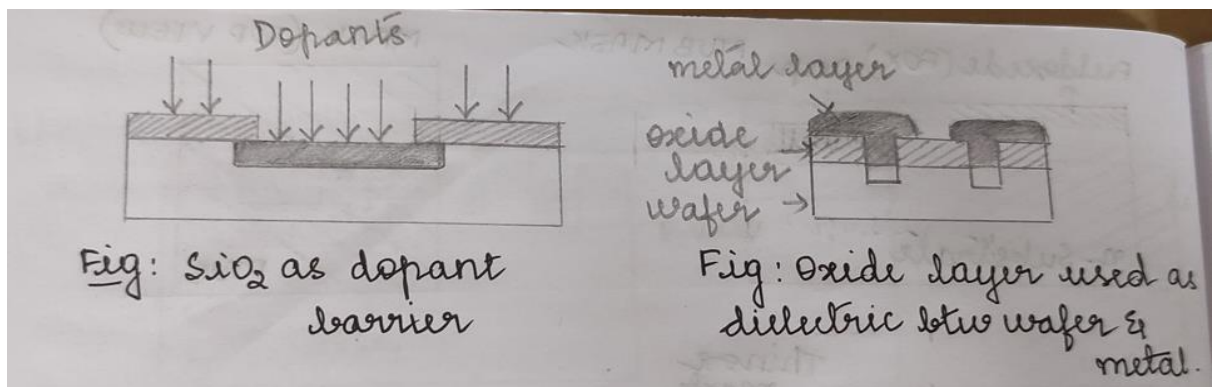 Dopants
Fig: SiO₂ as dopant
barrier
metal layer
oxide
layer
wafer
Fig: Oxide layer used as
dielectric btw wafer &
metal.